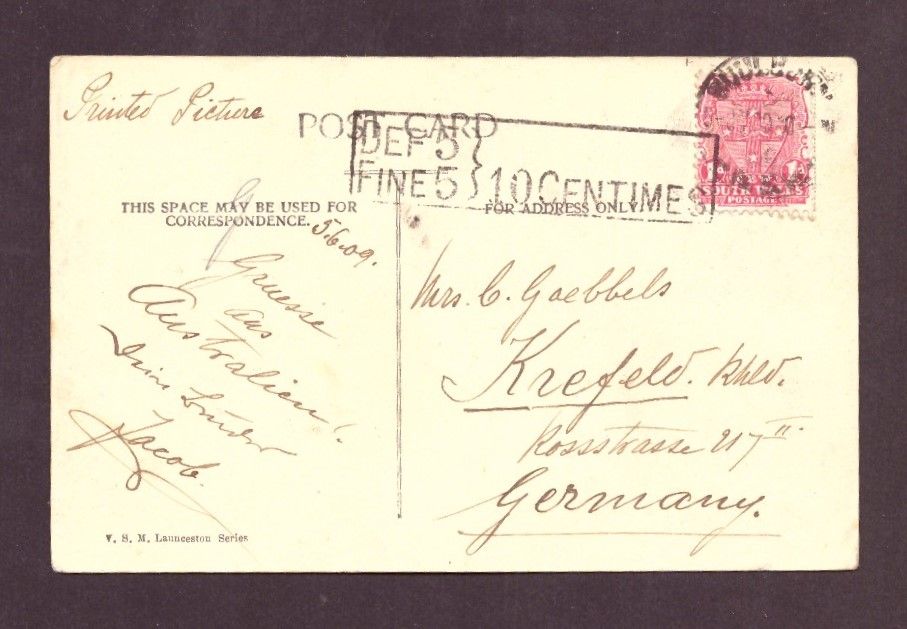 Printed Picture
POST CARD
DEF 5
FINE 5 } 10 CENTIMES
SOUTH WALES
POSTAGE
THIS SPACE MAY BE USED FOR
CORRESPONDENCE.
FOR ADDRESS ONLY.
5.6.09.
Gruesse
aus
Australien!
Dein Bruder
Jacob.
Mrs. C. Goebbels
Krefeld. Rhld.
Rossstrasse 217 II.
Germany.
V. S. M. Launceston Series